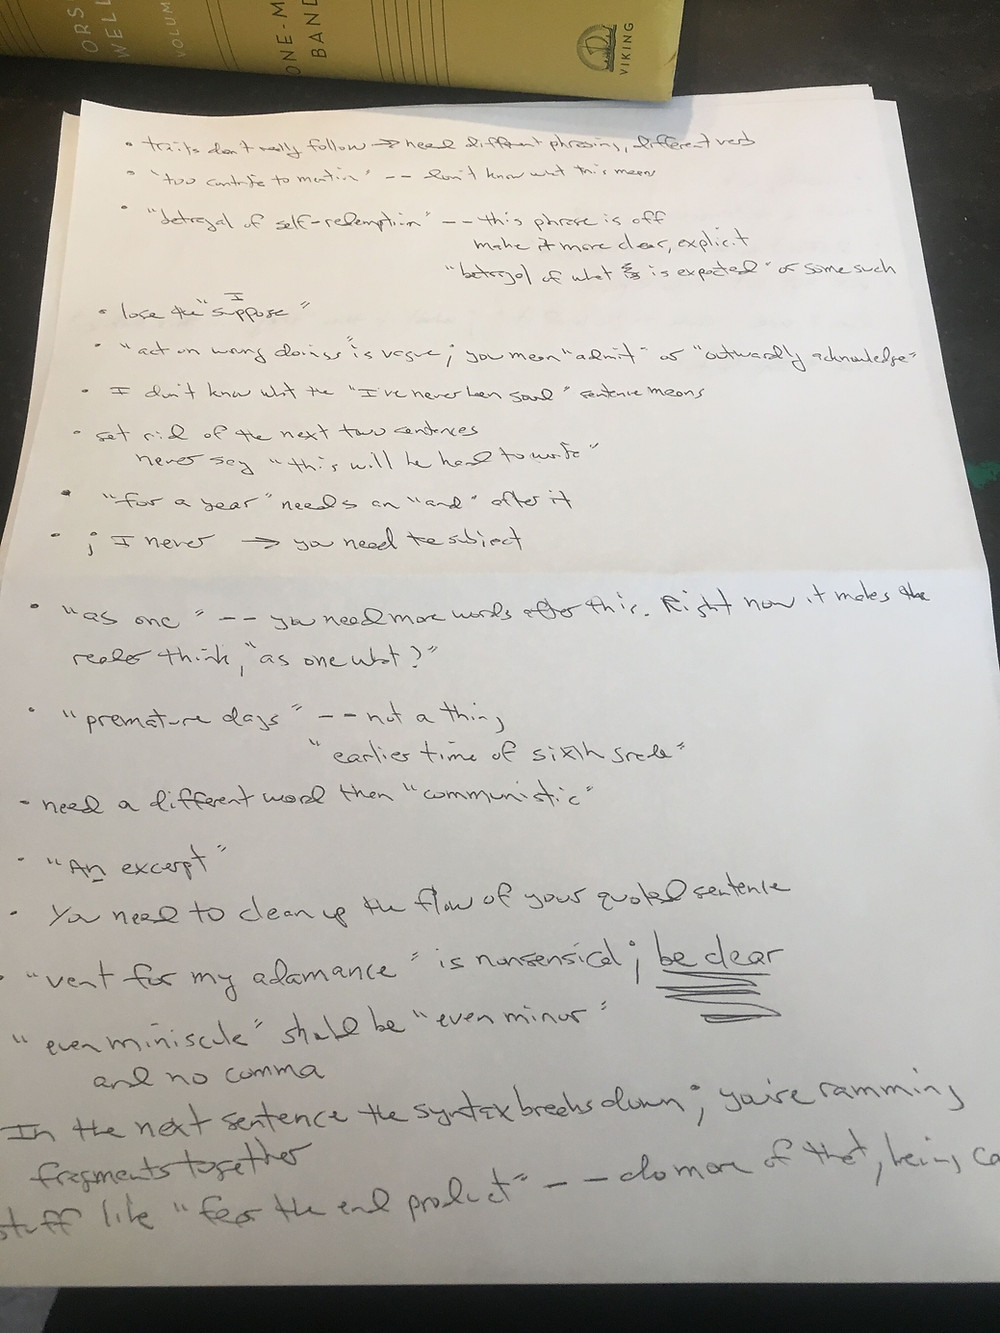 ORS
WELL
VOLUM
ONE-M
BAND
VIKING
• traits don't really follow → need different phrasing, different verb
• "too contrite to mention" -- don't know what this means
• "betrayal of self-redemption" -- this phrase is off
make it more clear, explicit
"betrayal of what is expected" or some such
• lose the "I suppose"
• "act on wrong doings" is vague; you mean "admit" or "outwardly acknowledge"
• I don't know what the "I've never been" sentence means
• get rid of the next two sentences
never say "this will be hard to write"
• "for a year" needs an "and" after it
• ; I never → you need the subject
• "as one" -- you need more words after this. Right now it makes the
reader think, "as one what?"
• "premature days" -- not a thing
"earlier time of sixth grade"
• need a different word then "communistic"
• "An excerpt"
• You need to clean up the flow of your quoted sentence
• "vent for my adamance" is nonsensical; be clear
"even miniscule" should be "even minor"
and no comma
In the next sentence the syntax breaks down; you're ramming
fragments together
stuff like "fear the end product" -- do more of that, being